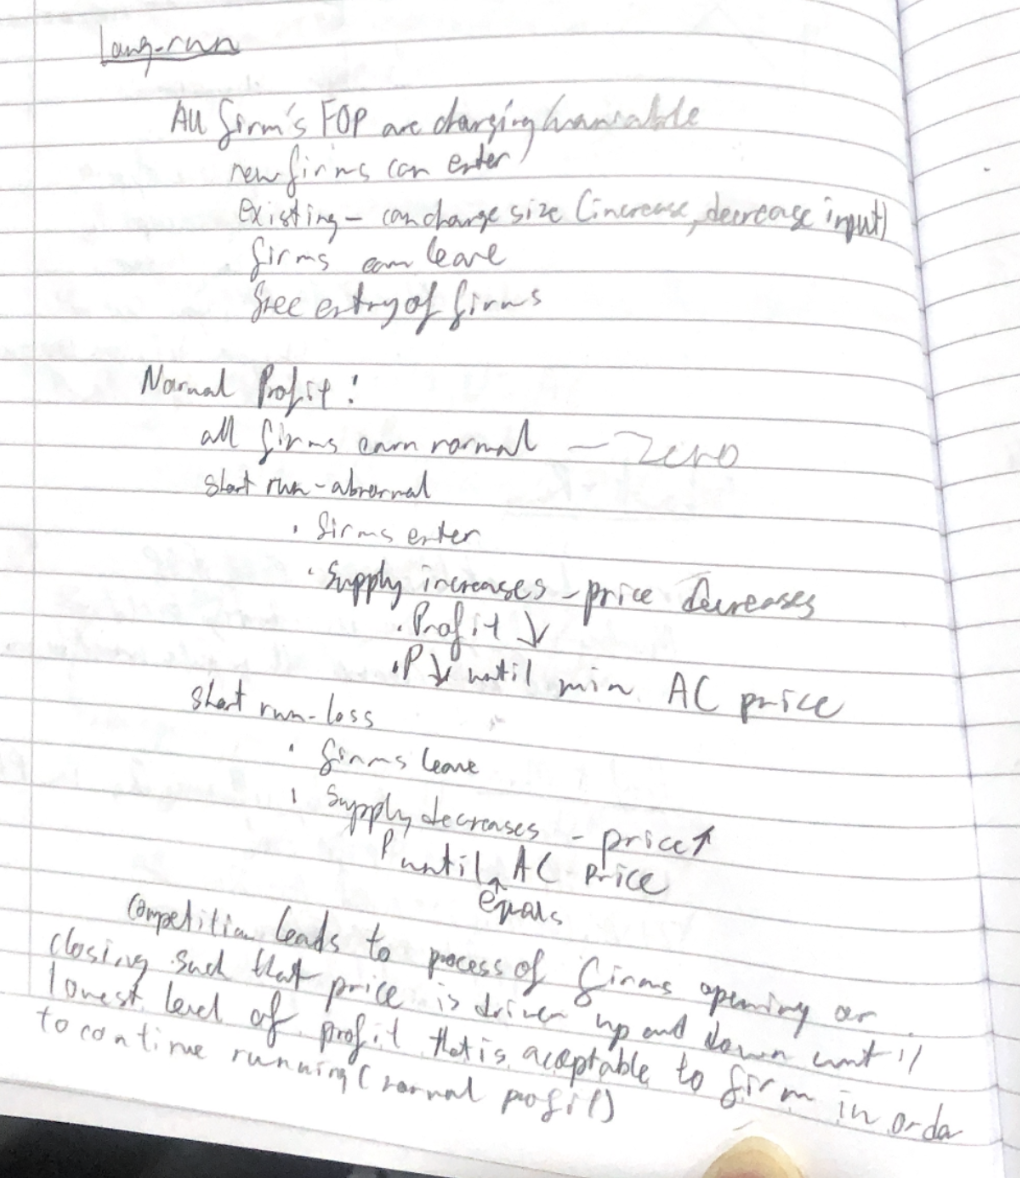 Long-run
All firm's FOP are changing/variable
new firms can enter
Existing - can change size (increase, decrease input)
firms can leave
free entry of firms
Normal Profit:
all firms earn normal - Zero
short run - abnormal
· firms enter
· Supply increases - price decreases
· Profit ↓
· P ↓ until min AC price
short run - loss
· firms leave
· Supply decreases - price ↑
P until ^ AC price
equals
Competition leads to process of firms opening or
closing such that price is driven up and down until
lowest level of profit that is acceptable to firm in order
to continue running (normal profit)